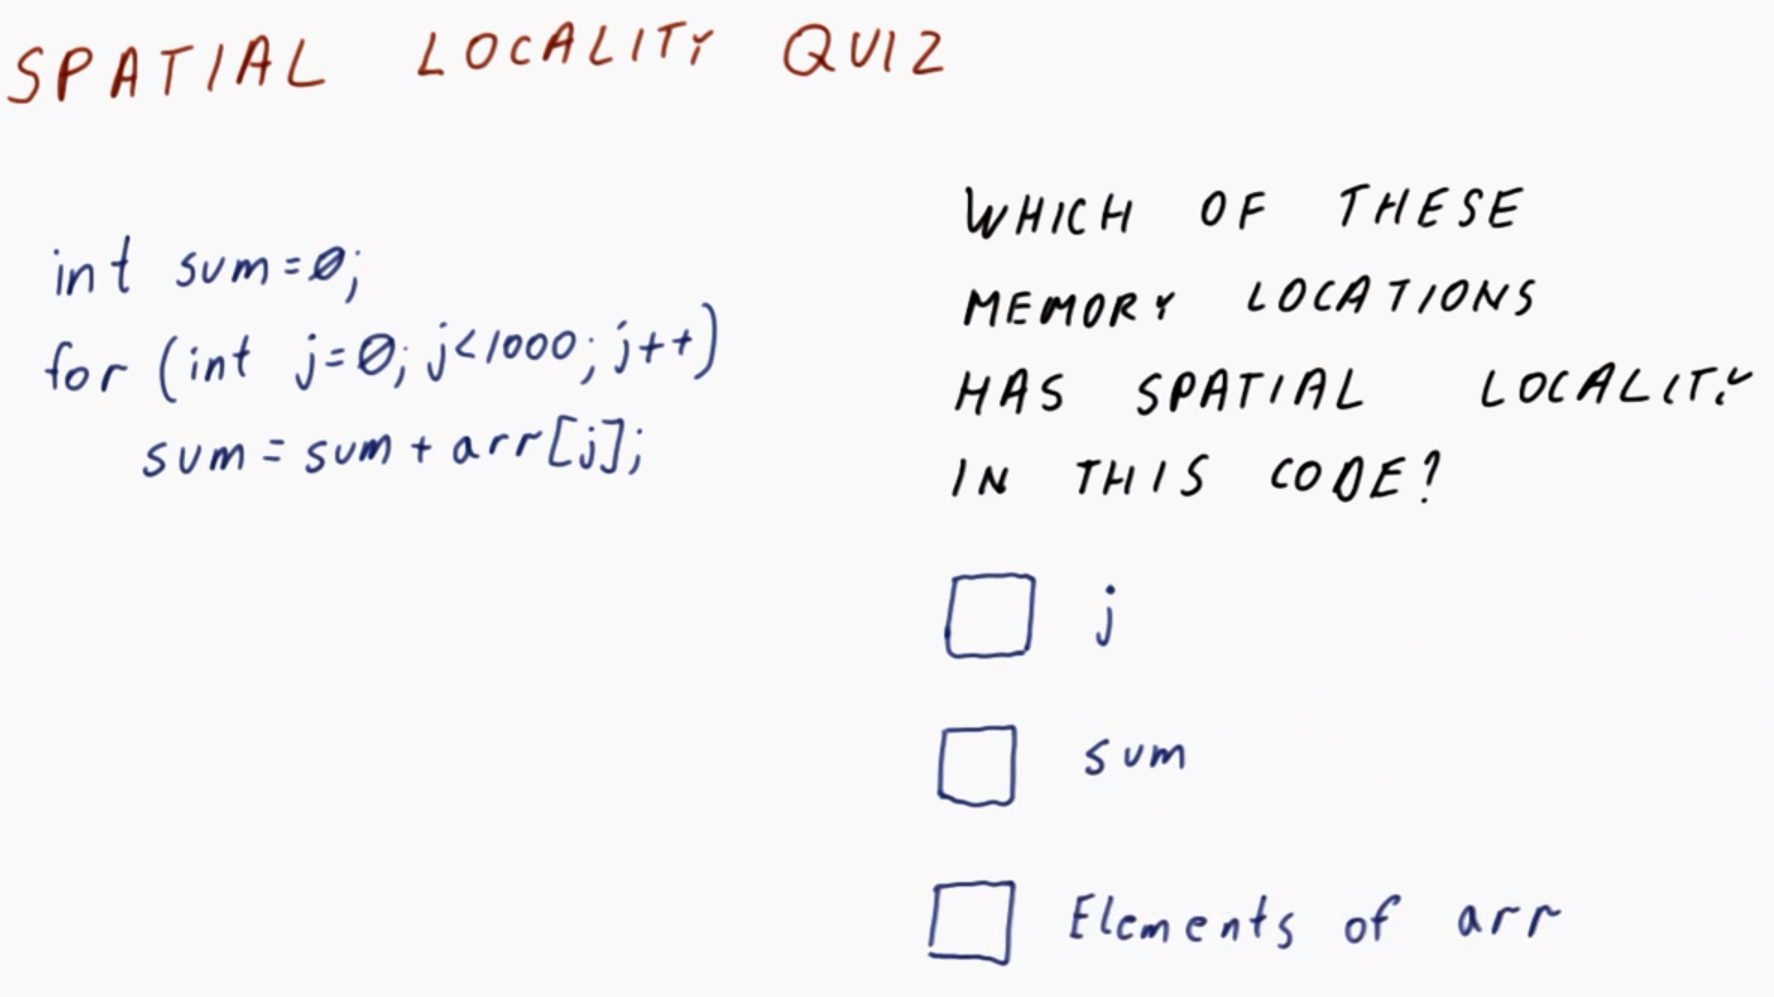 SPATIAL LOCALITY QUIZ
int sum=0;
for (int j=0; j<1000; j++)
sum = sum + arr[j];
WHICH OF THESE
MEMORY LOCATIONS
HAS SPATIAL LOCALITY
IN THIS CODE?
j
sum
Elements of arr